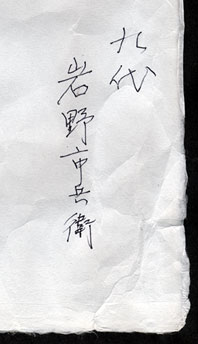 九代
岩野市兵衛